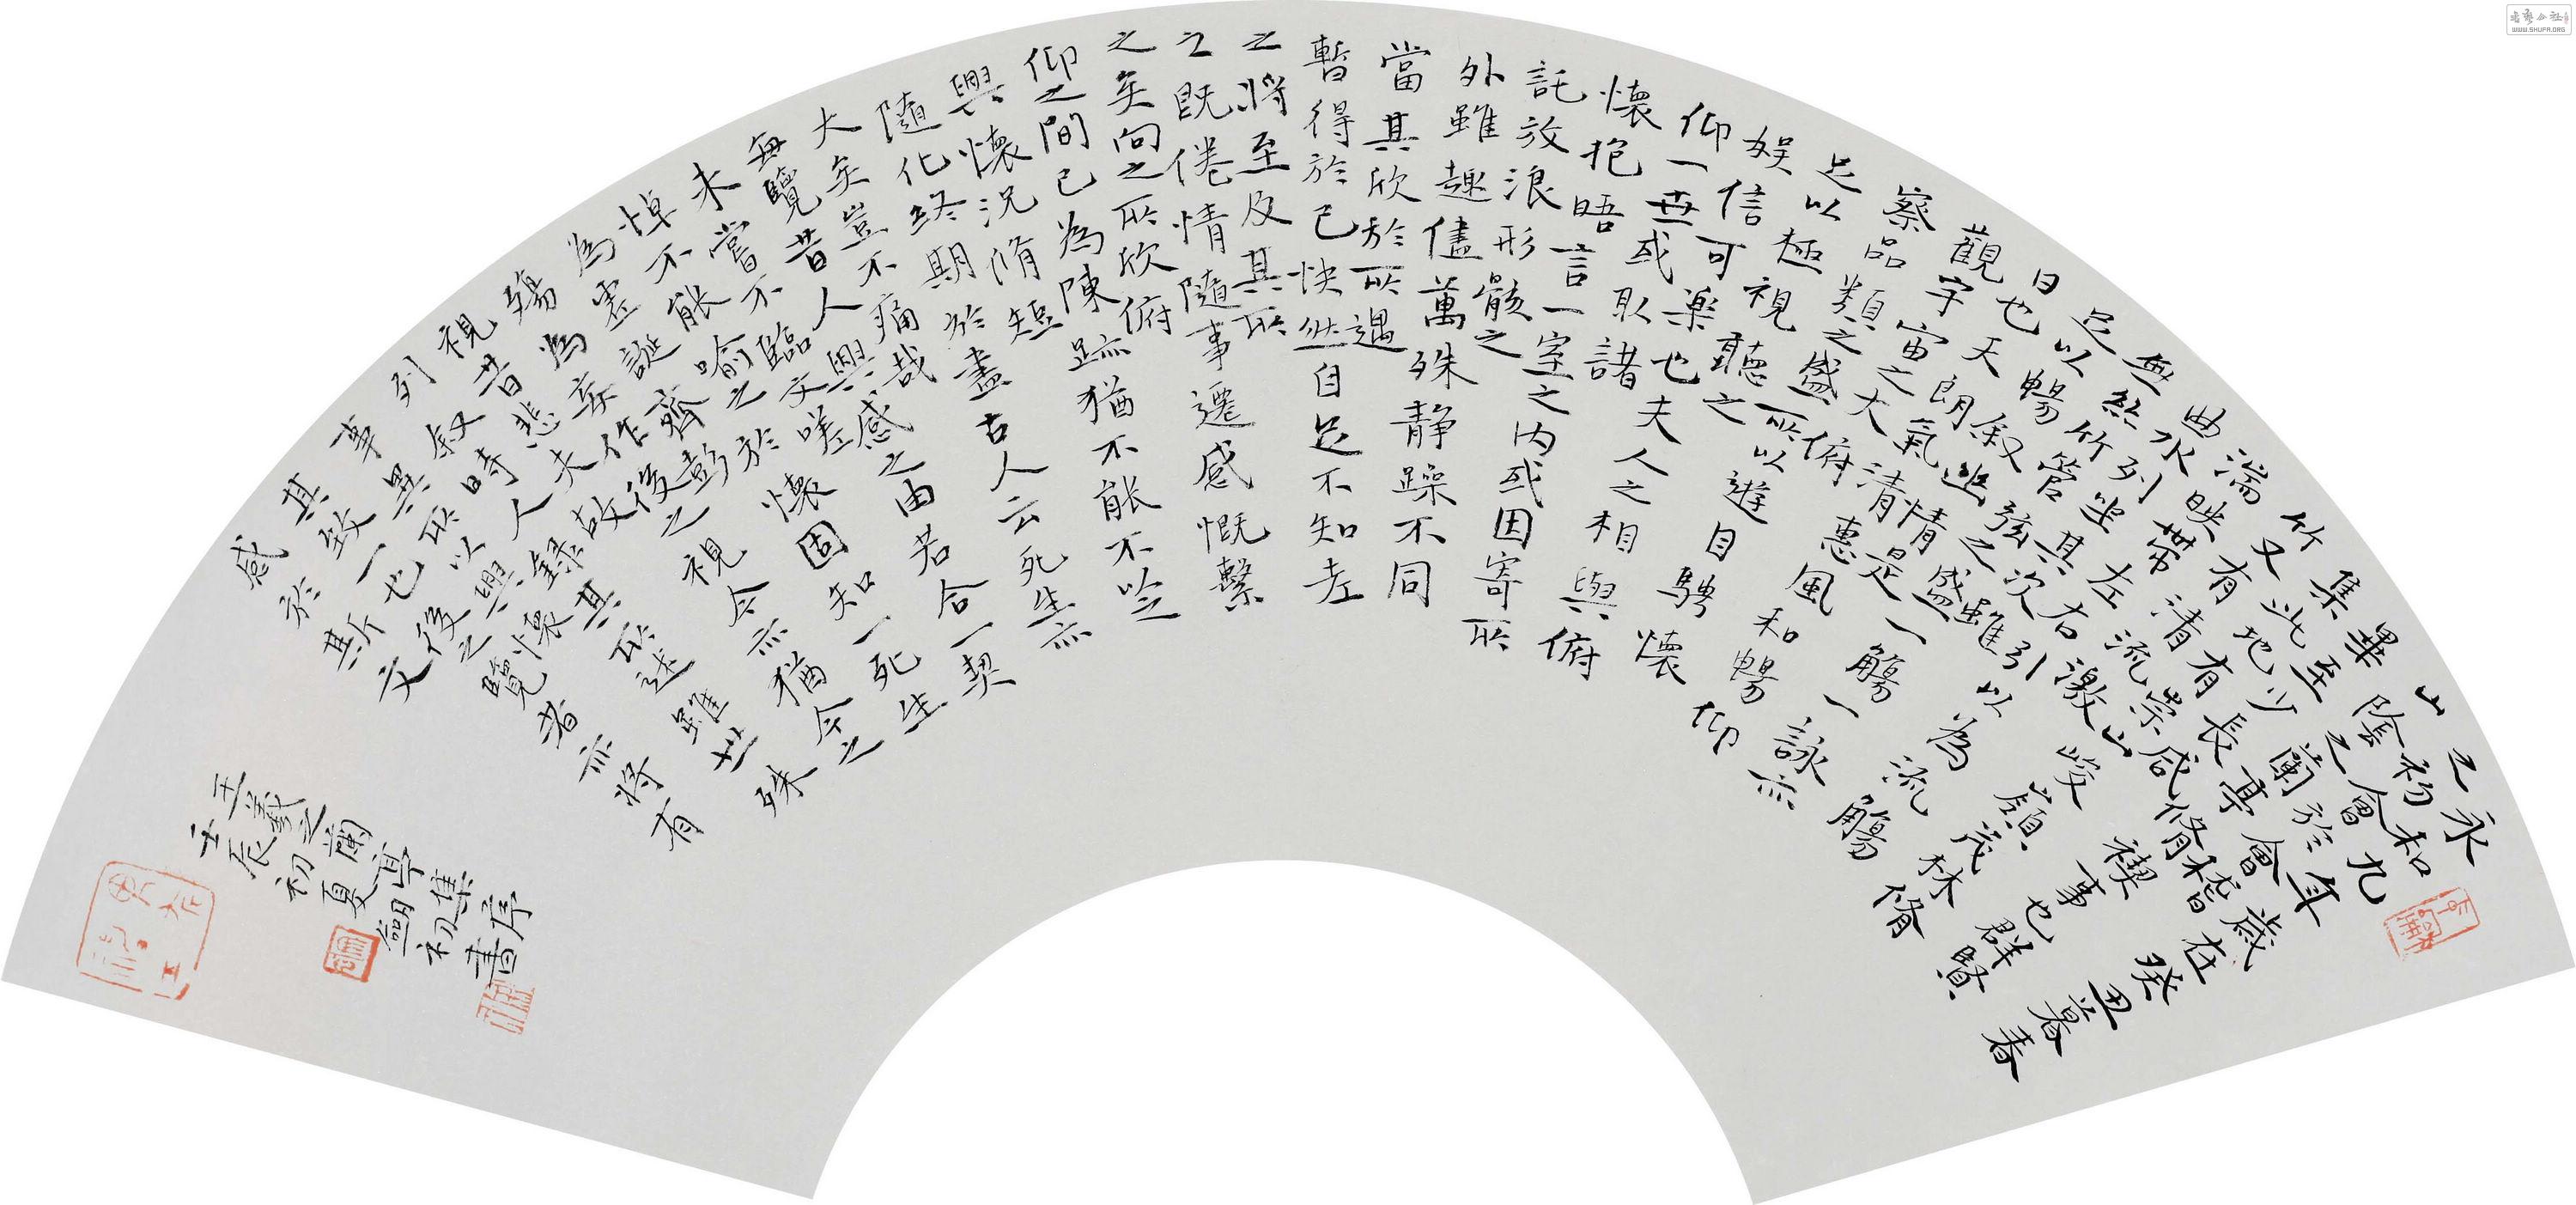 永和九年歲在癸丑暮春
之初會於會稽
山陰之蘭亭脩禊事也群賢
畢至少長咸
集此地有崇山峻嶺茂林脩
竹又有清流激
湍映帶左右引以為流觴
曲水列坐其次雖
無絲竹管弦之盛一觴一詠亦
足以暢叙幽情是
日也天朗氣清惠風和暢仰
觀宇宙之大俯
察品類之盛所以遊目騁懷
足以極視聽之
娱信可樂也夫人之相與俯
仰一世或取諸
懷抱晤言一室之內或因寄所
託放浪形骸之
外雖趣儘萬殊静躁不同
當其欣於所遇
暫得於己快然自足不知老
之將至及其所
之既倦情隨事遷感慨繫
之矣向之所欣俯
仰之間已為陳跡猶不能不以之
興懷況脩短
隨化終期於盡古人云死生亦
大矣豈不痛哉
每覽昔人興感之由若合一契
未嘗不臨文嗟
悼不能喻之於懷固知一死生
為虛誕齊彭
殤為妄作後之視今亦猶今之
視昔悲夫故
列叙時人錄其所述雖世殊
事異所以興懷
其致一也後之覽者亦將有
感於斯文
王羲之蘭亭集序
壬辰初夏劒初書